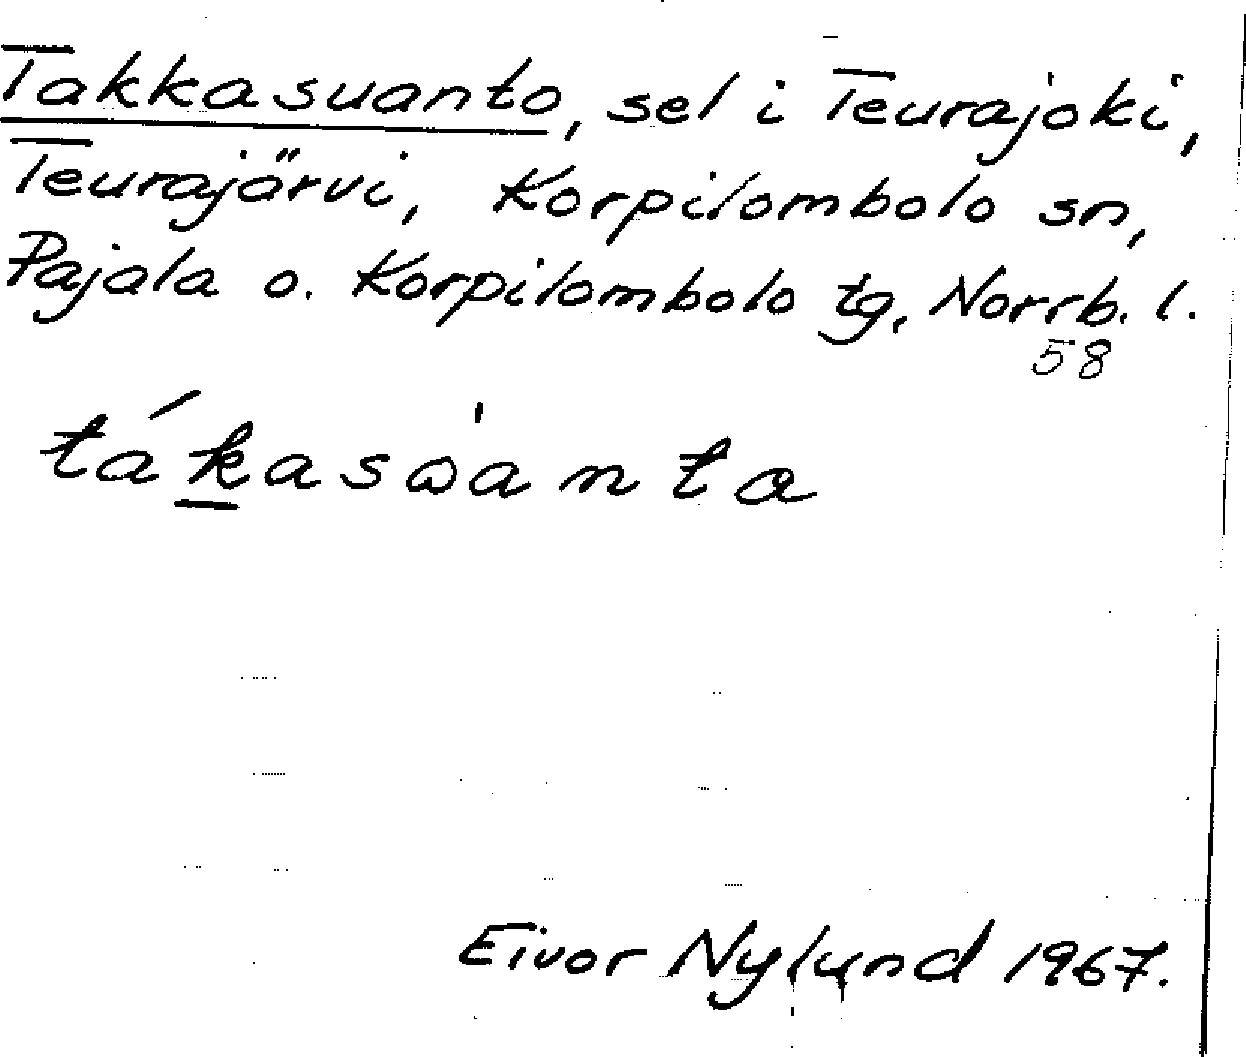 Takkasuanto, sel i Teurajoki,
Teurajärvi, Korpilombolo sn,
Pajala o. Korpilombolo tg, Norrb. l.
58
tákasωànta
Eivor Nylund 1967.